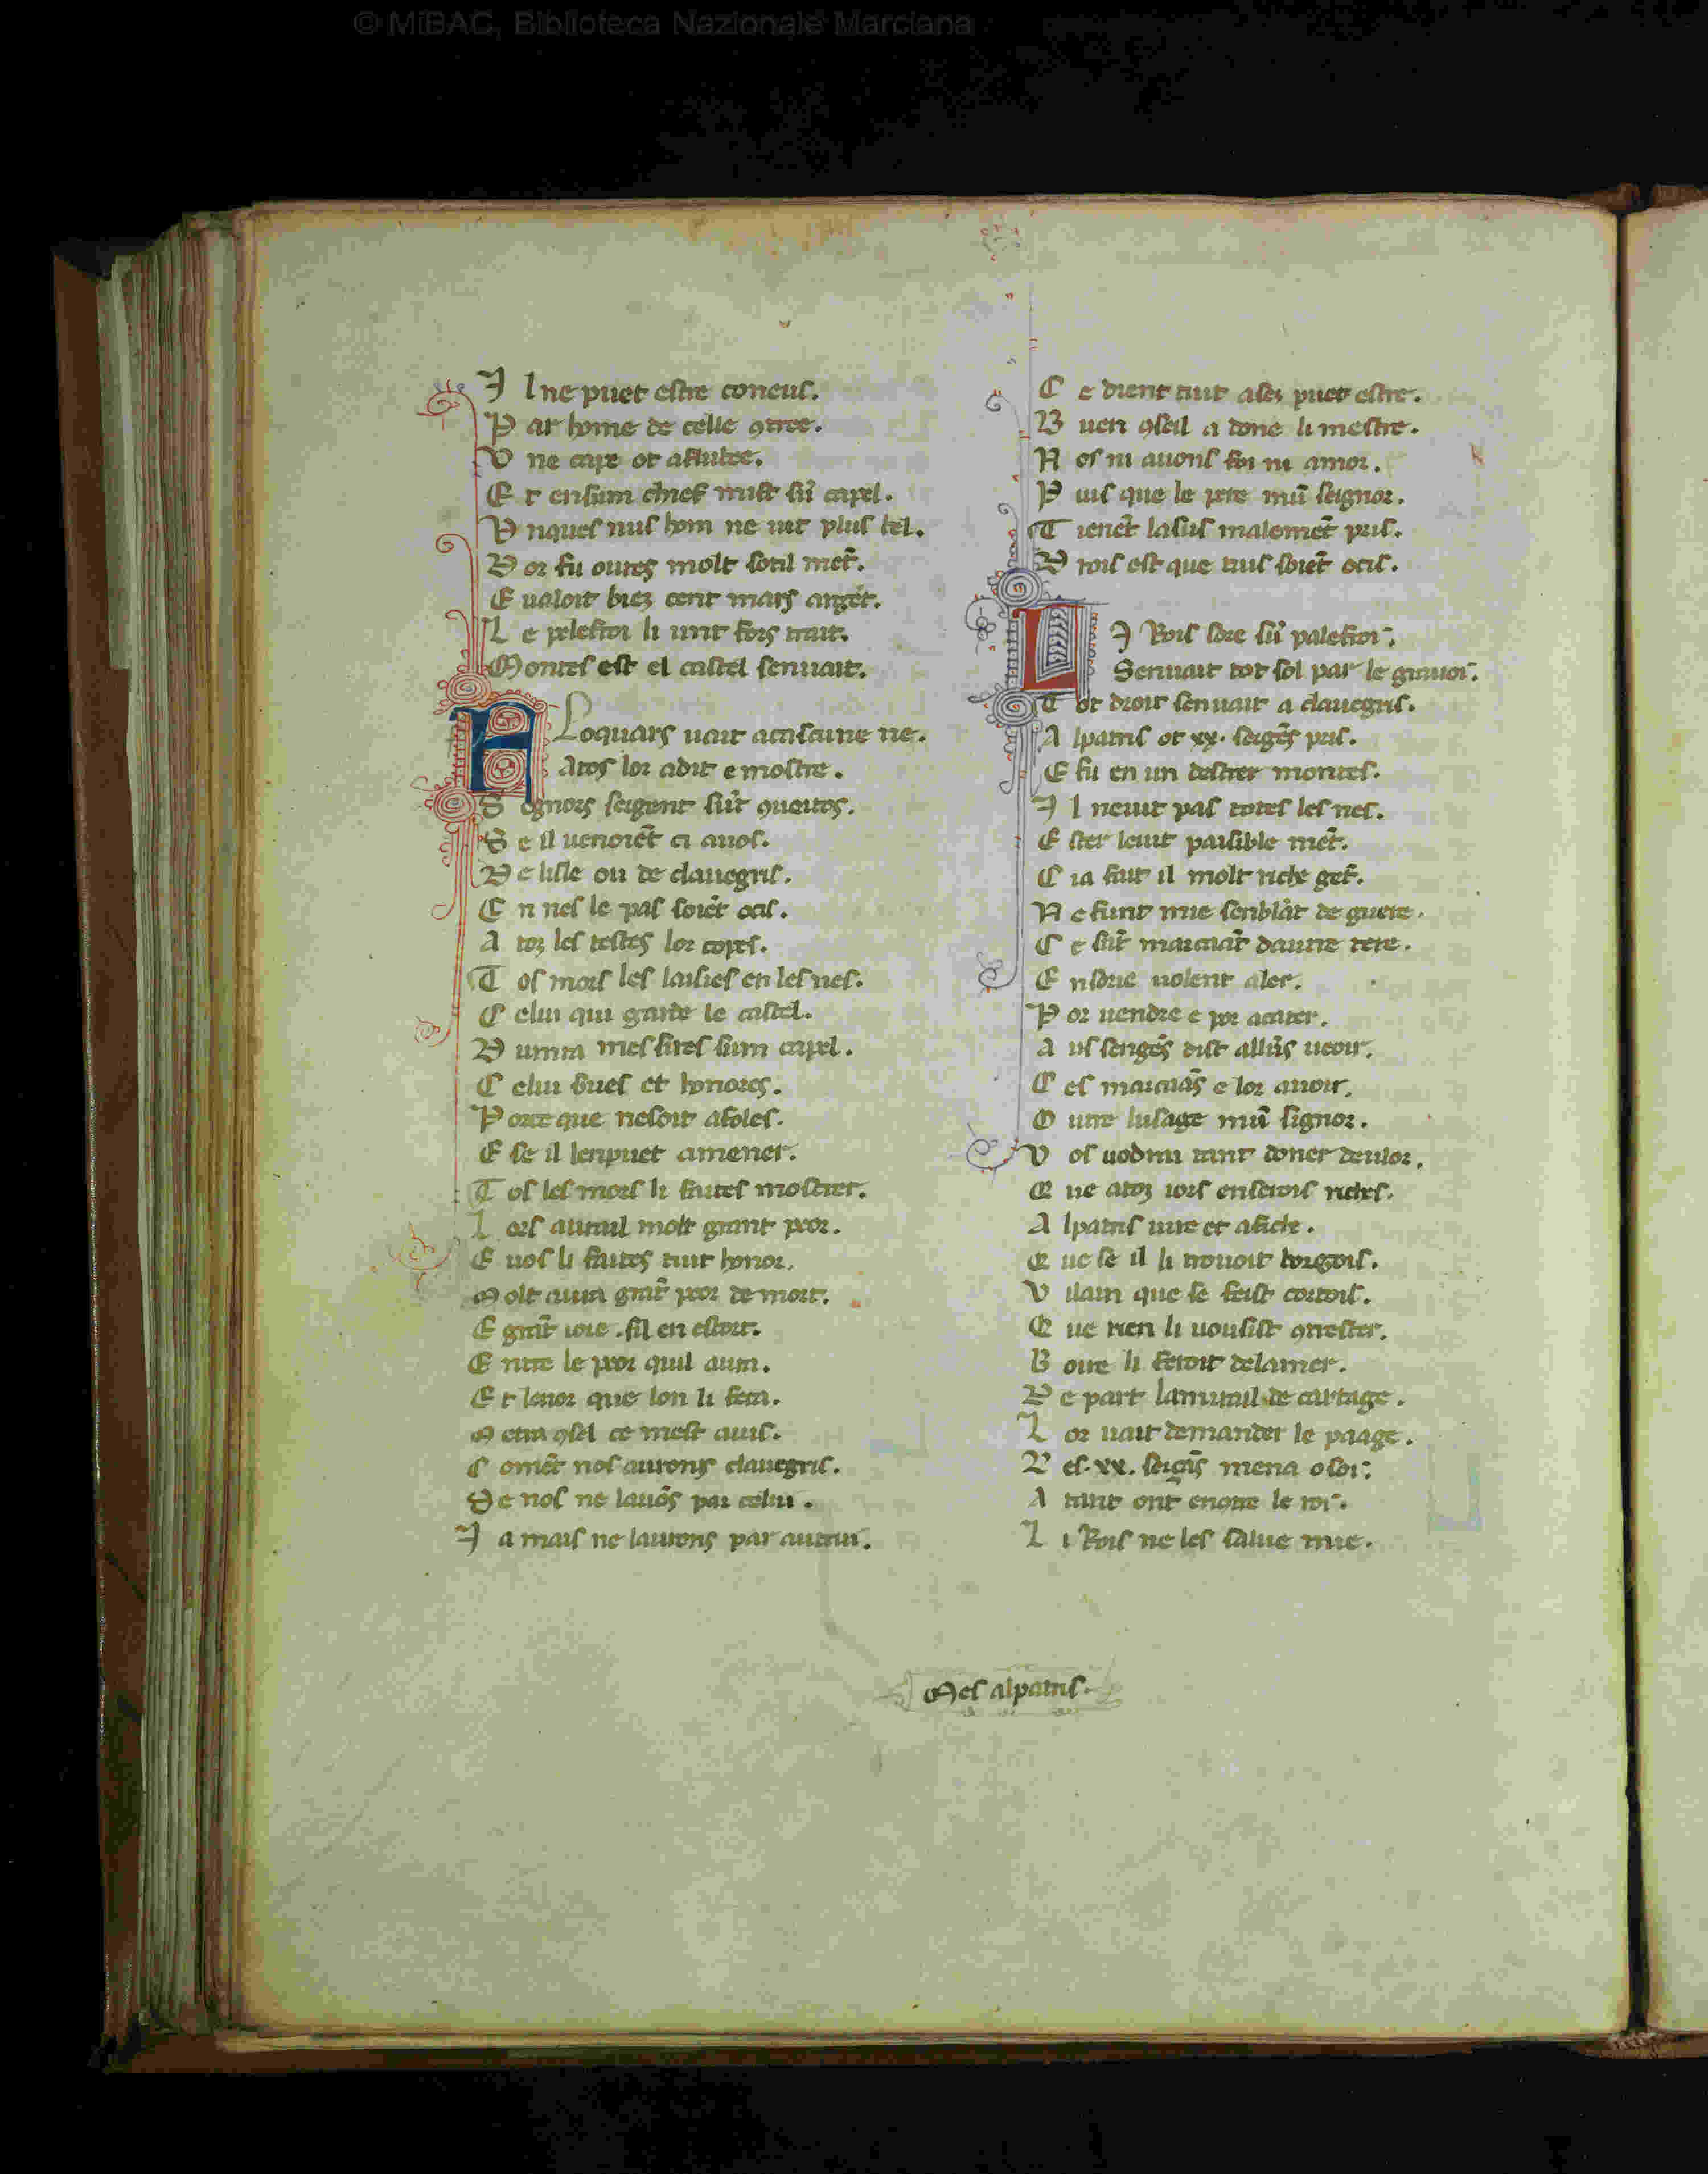 © MiBAC, Biblioteca Nazionale Marciana
I l ne puet estre coneus.
P ar home de celle ꝯtree.
U ne cape ot afublee.
E t ensum chief mist sũ capel.
U nques nus hom ne uit plus bel.
D or fu oures molt sotil mẽt.
E ualoit biez cent mars argẽt.
L e palefroi li unt fors trait.
Montes est el castel senuait.
A Loquars uait acascune ne.
Atos lor adit e mostre.
S egnors seignent sũt ꝯueitos.
S e il uenoiẽt ci auos.
D e lisle ou de clauegris.
E n nes le pas soiẽt ocis.
A toz les testes lor copes.
T os mors les laisies en les nes.
C elui qui garde le castel.
D umra mes sires sum capel.
C elui sues et honores.
P orte que nesoit afoles.
E se il lenpuet amener.
T os les mors li faites mostrer.
L ors aurail molt grant peor.
E uos li faites tuit honor.
M olt aura grãt peor de mort.
E grãt ioie .sil en estort.
E ntre le peor quil aura.
E t lenor que lon li fera.
M etra ꝯsel ce mest auis.
C omẽt nos aurons clauegris.
S e nos ne lauõs par celui.
I a mais ne laurons par autrui.
C e dient tuit asez puet estre.
B uen ꝯseil a done li mestre.
N os ni auons foi ni amor.
P uis que le pere mũ seignor.
T ienẽt lasus malemẽt pris.
D rois est que tuis soiẽt ocis.
L I Rois sore sũ palefroi.
Senuait tot sol par le grauoi.
T ot droit senuait a clauegris.
A lpatris ot xx. seigẽs pris.
E fu en un destrer montes.
I l neuit pas totes les nes.
E ster leuit paisible mẽt.
C ia fait il molt riche gẽt.
N e funt mie senblãt de guere.
C e sũt marcaãt dautre tere.
E nsorie uolent aler.
P or uendre e por acater.
A us sengẽs dist allũs ueoir.
C es marcaãs e lor auoir.
O utre lusage mũ signor.
U os uodrai tant doner deulor.
Q ue atoz iors enserois riches.
A lpatris iure et afiche.
Q ue se il li trouoit borgois.
U ilain que se feist cortois.
Q ue rien li uousist ꝯtrester.
B oire li feroit delamer.
D e part lamirail de cartage.
L or uait demander le paage.
D es. xx. seigãs mena o soi.
A tant ont encõtre le roi.
L i Rois ne les salue mie.
Mes alpatris.